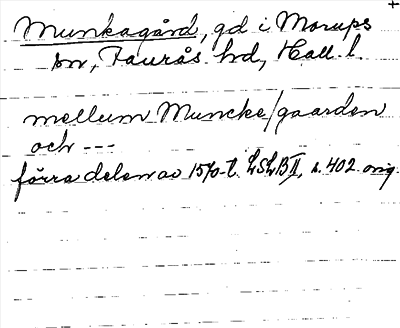 +
Munkagård, gd i Morups
sn, Faurås hd, Hall. l.
mellum Muncke/gaarden
och ---
förra delen av 1570-t. LSLB II, s. 402 orig.